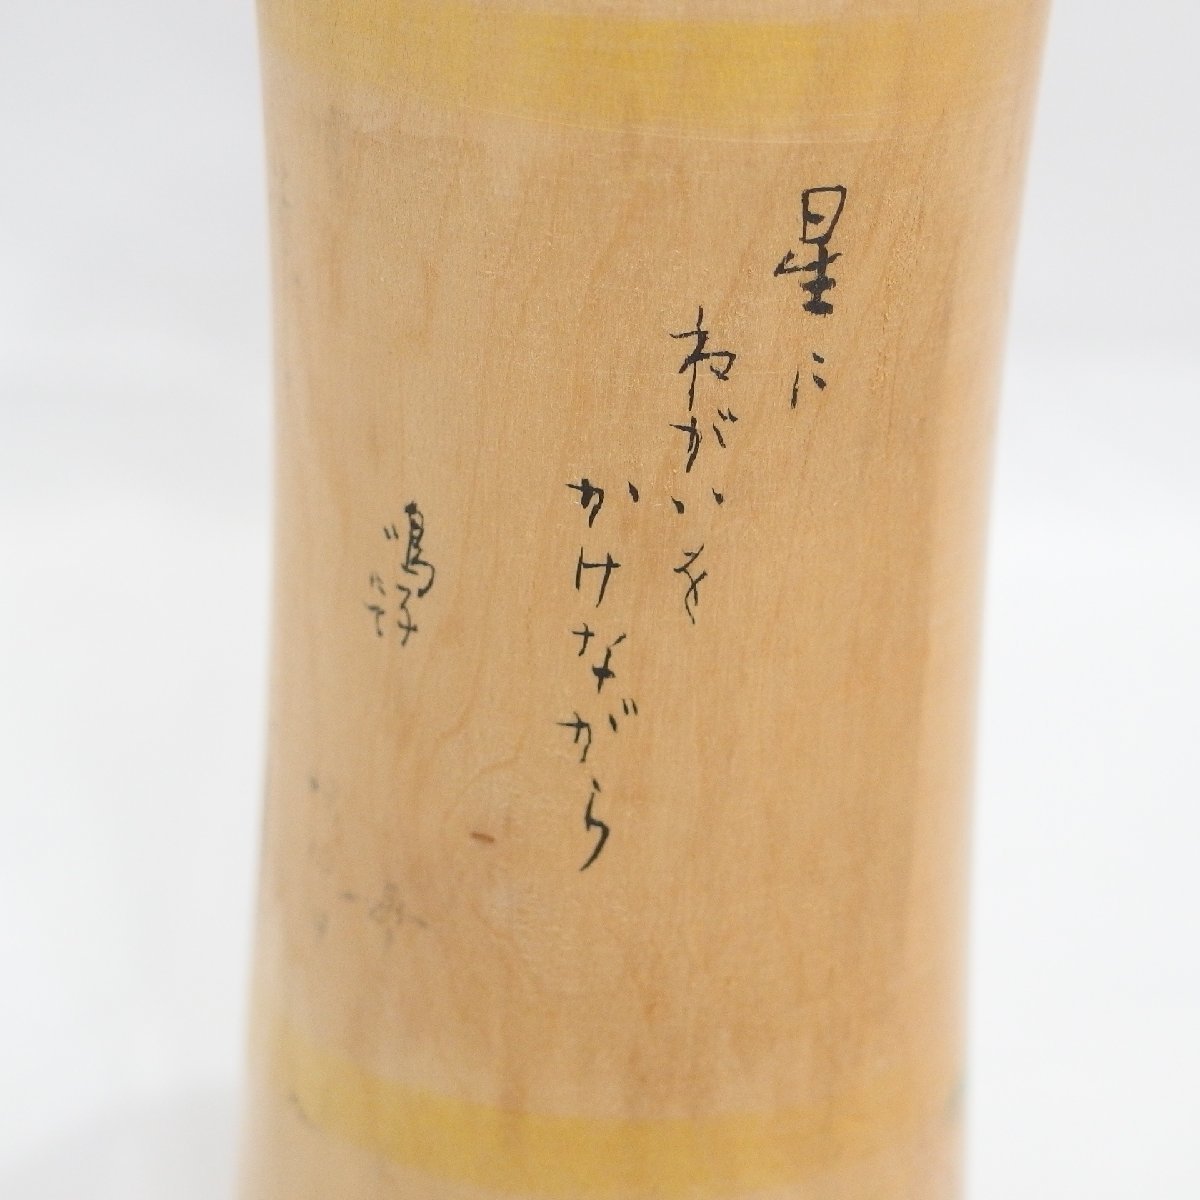 星に
ねがいを
かけながら
鳴子
にて